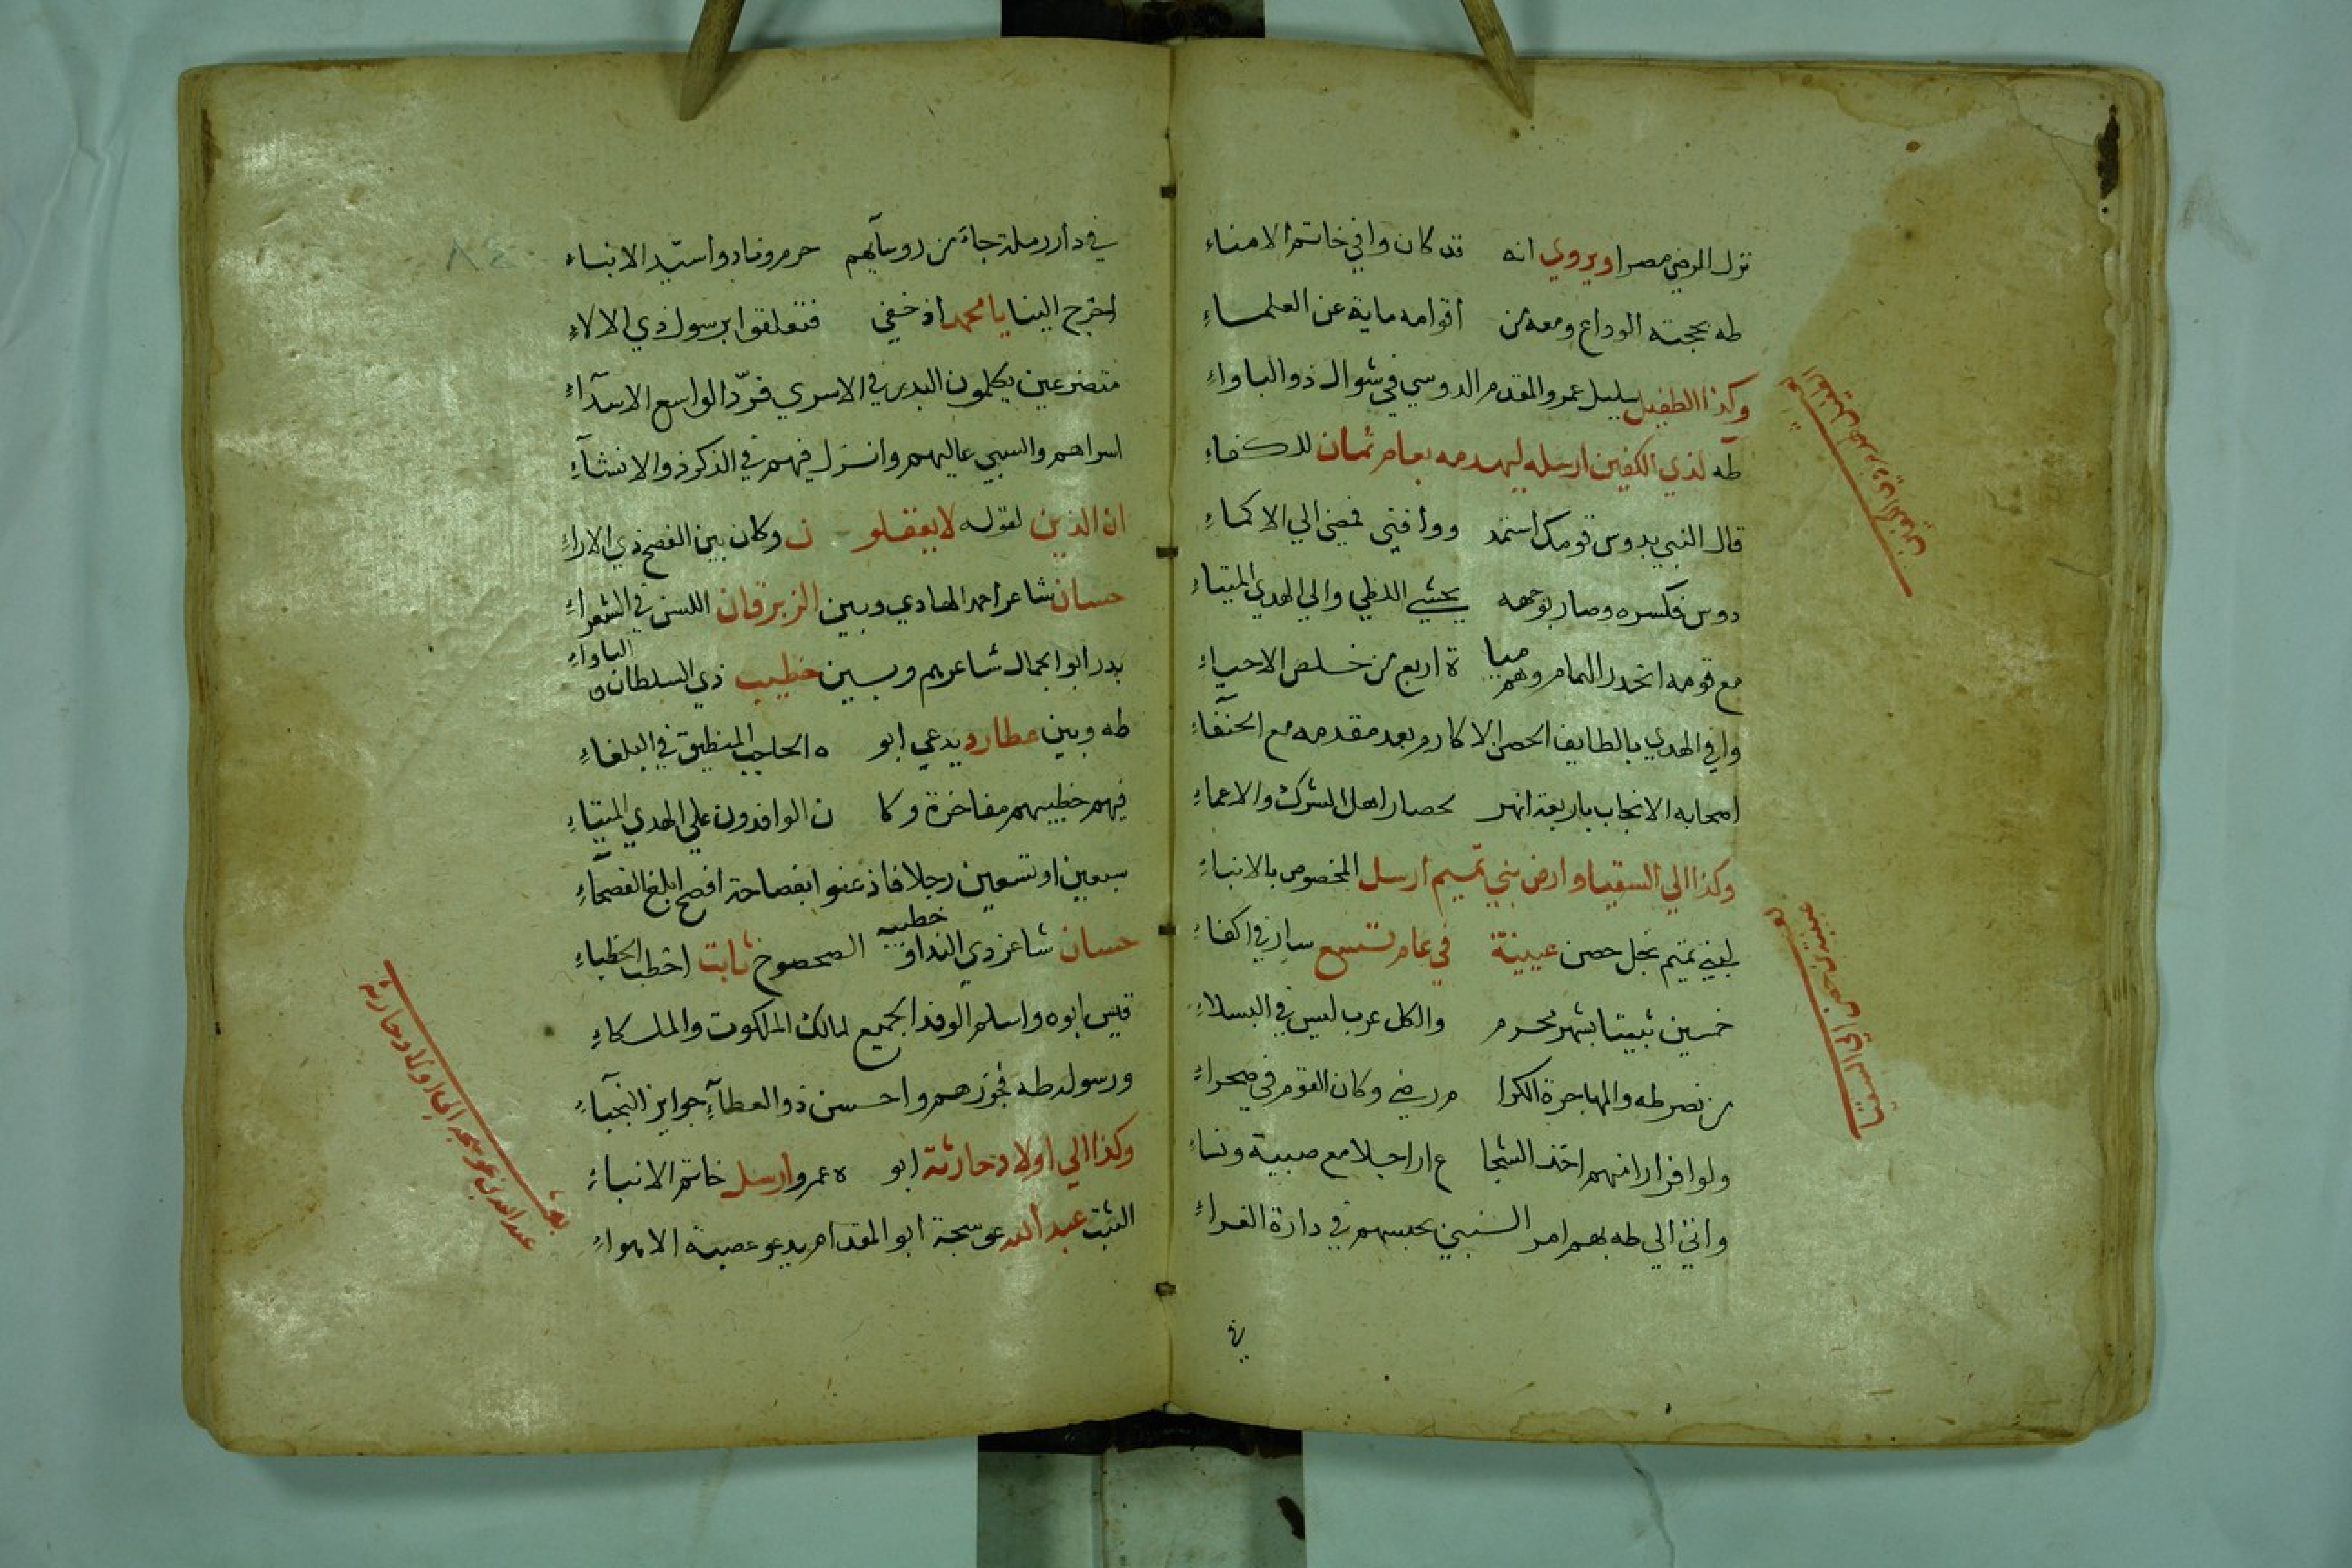 نزل الرضي مصرا ويروي انه قد كان وافي خاتم الامناء
طه بحجته الوداع ومعه من اقوامه ماية عن العلماء
وكذا الطفيل سليل عمرو المقدم الدوسي في شوال ذو الباواء
طه لذي الكفين ارسله ليهدمه بعام ثمان للكفاء
قال النبي بدوس قومك استمد ووافني فمضي الي الاكماء
دوس فكسره وصار بوجهه يحشي اللظي والي الهدي الميتاء
مع قومه انحدر الهمام وهم مياة اربع من خلص الاحياء
وافي الهدي بالطايف الحصن الاكارم بعد مقدمه مع الحنفاء
اصحابه الانجاب باربعة انهر لحصار اهل الشرك والاعماء
وكذا الي السقيا وارض بني تميم ارسل المخصوص بالانباء
لبني تميم نجل حصن عيينة في عام تسع سار في اكفاء
خمسين ثبيتا بشهر محرم والكل عرب ليس في البسلاء
من نصر طه والمهاجرة الكرا م رضي وكان القوم في صحراء
ولوا فرارا منهم اخذ الشجا ع اراجلا مع صبية ونساء
واتي الي طه بهم امر السنبي بحبسهم في دارة الغراء
في
الطفيل لهدم ذي الكفين
عيينة بن حصن الي السقيا
في دار رملة جاء من روسآيهم حرم ونادوا سيد الانباء
اخرج الينا يا محمد اذ خفي فتعلقوا برسول ذي الالاء
متضرعين يكلمون البدر في الاسري فردّ الواسع الاسدآء
اسراهم والسبي عاليهم وانزل فيهم في الذكر ذو الانشآء
ان الذين لقوله لا يعقلو ن وكان بين الفصح ذي الاراء
حسان شاعر احمد الهادي وبين الزبرقان اللسن في الشعراء
بدر ابو الجمال شاعرهم وبين خطيب ذي السلطان الباواء
طه وبين عطارد يدعي ابو ه الحاجب المنطيق في البلغاء
فيهم خطيبهم مفاخرة وكا ن الوافدون علي الهدي الميتاء
سبعين او تسعين رجلا فاذعنوا بفصاحة افصح ابلغ الفصحاء
حسان شاعر ذي الندا وخطيبه الصحصوح ثابت اخطب الخطباء
قيس ابوه واسلم الوفد الجميع لمالك الملكوت والملكاء
ورسوله طه فجوزهم واحسن ذو العطآء جوايز النجبآء
وكذا الي اولاد حارثة ابو ه عمرو ارسل خاتم الانباء
الثبت عبد الله عوسجة ابو المقدام يدعو عصبة الاهواء
بعث
عبد الله بن عوسجة الي اولاد حارثة
٨٤